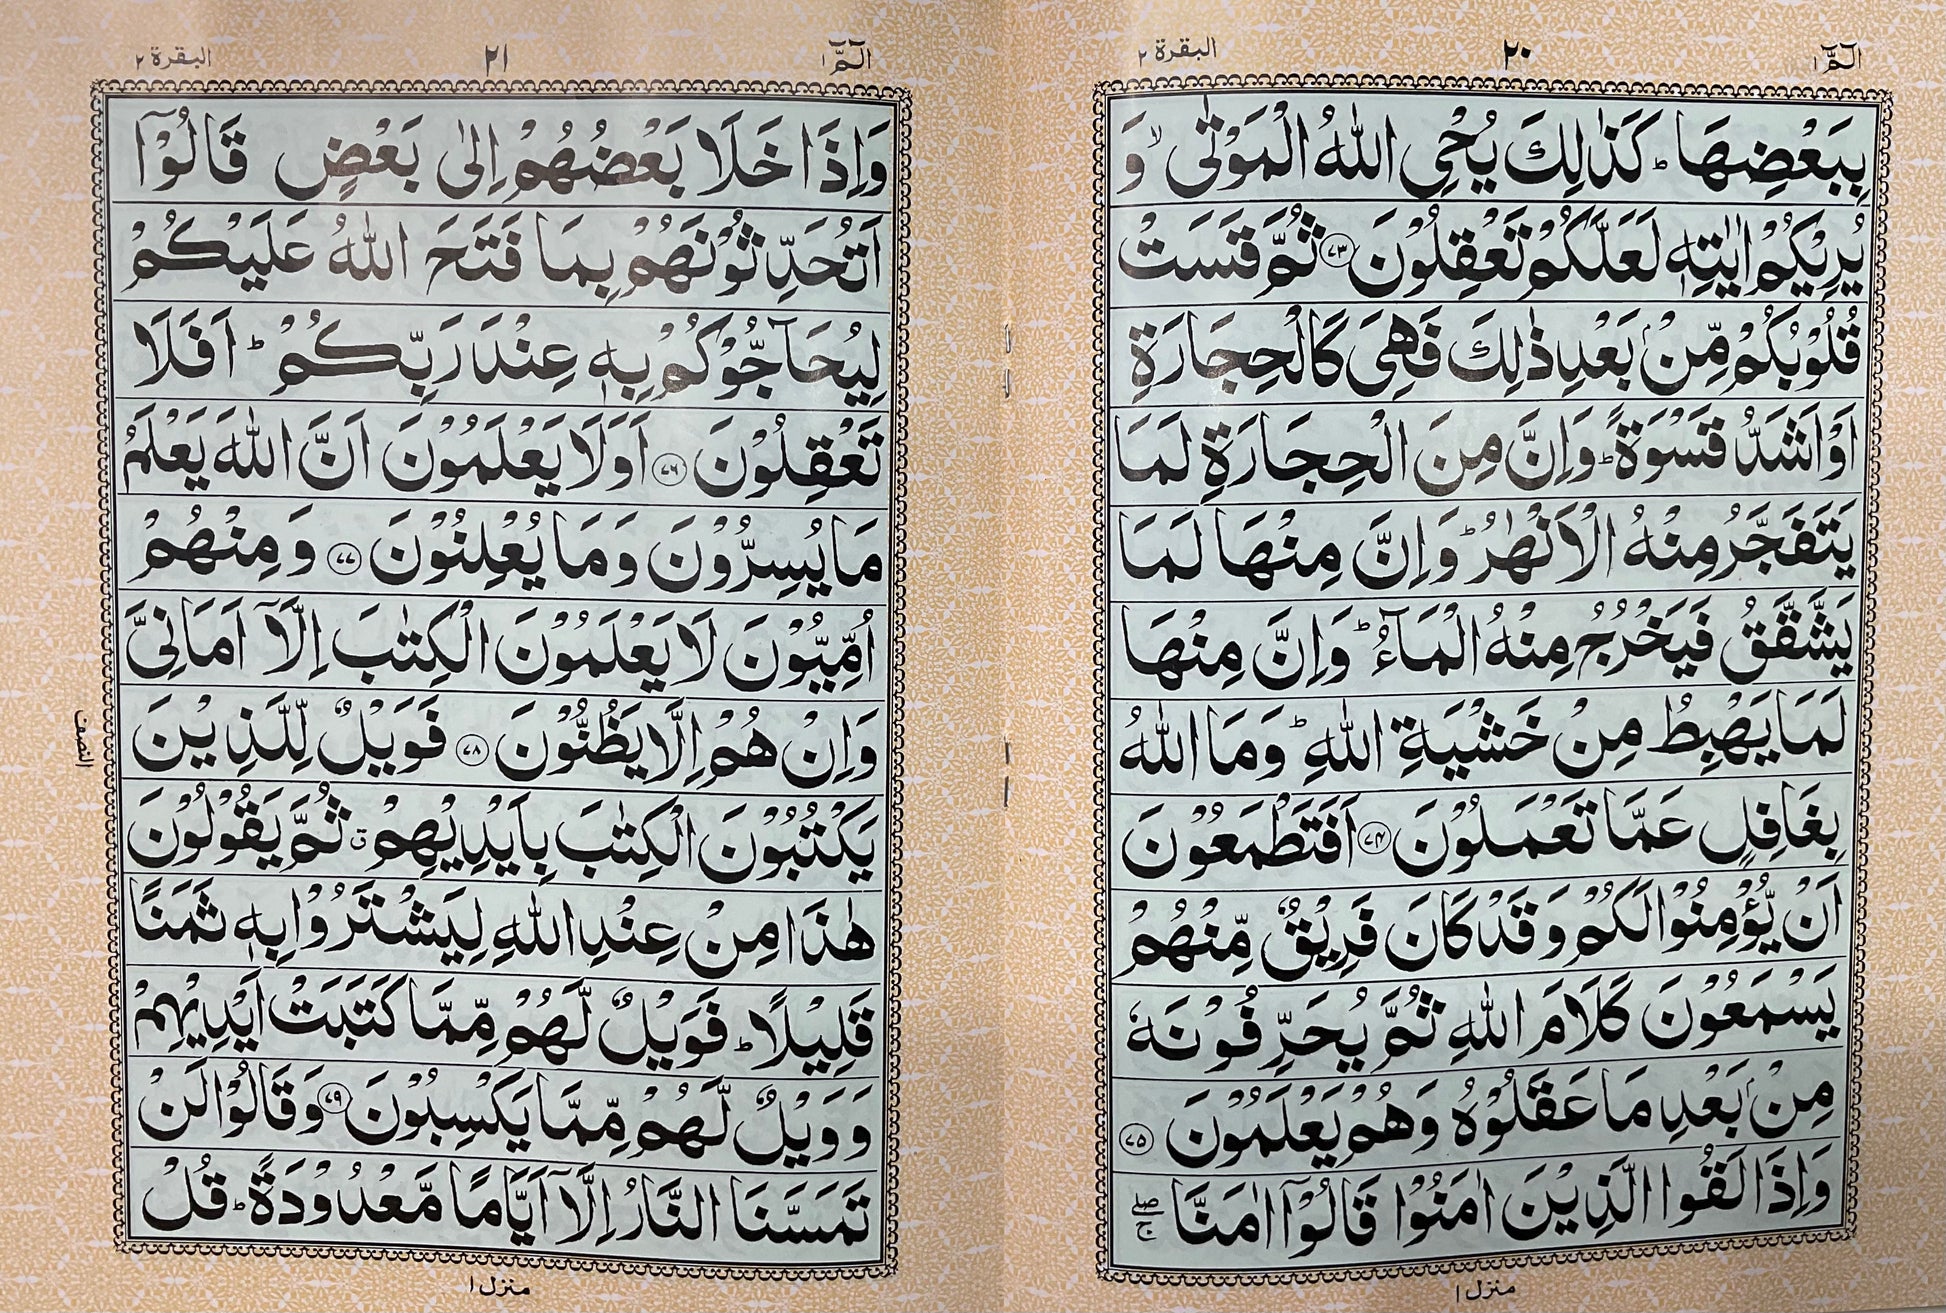 الٓمّٓ ١
٢٠
البقرة ٢
بِبَعْضِهَا ؕ كَذٰلِكَ يُحْيِ اللّٰهُ الْمَوْتٰى ۙ وَ
يُرِيْكُمْ اٰيٰتِهٖ لَعَلَّكُمْ تَعْقِلُوْنَ ﴿۷۳﴾ ثُمَّ قَسَتْ
قُلُوْبُكُمْ مِّنْۢ بَعْدِ ذٰلِكَ فَهِیَ كَالْحِجَارَةِ
اَوْ اَشَدُّ قَسْوَةً ؕ وَاِنَّ مِنَ الْحِجَارَةِ لَمَا
يَتَفَجَّرُ مِنْهُ الْاَنْهٰرُ ؕ وَاِنَّ مِنْهَا لَمَا
يَشَّقَّقُ فَيَخْرُجُ مِنْهُ الْمَآءُ ؕ وَاِنَّ مِنْهَا
لَمَا يَهْبِطُ مِنْ خَشْيَةِ اللّٰهِ ؕ وَمَا اللّٰهُ
بِغَافِلٍ عَمَّا تَعْمَلُوْنَ ﴿۷۴﴾ اَفَتَطْمَعُوْنَ
اَنْ يُّؤْمِنُوْا لَكُمْ وَقَدْ كَانَ فَرِيْقٌ مِّنْهُمْ
يَسْمَعُوْنَ كَلَامَ اللّٰهِ ثُمَّ يُحَرِّفُوْنَهٗ
مِنْۢ بَعْدِ مَا عَقَلُوْهُ وَهُمْ يَعْلَمُوْنَ ﴿۷۵﴾
وَاِذَا لَقُوا الَّذِيْنَ اٰمَنُوْا قَالُوْٓا اٰمَنَّا ۖۚ
منزل ١
الٓمّٓ ١
٢١
البقرة ٢
وَاِذَا خَلَا بَعْضُهُمْ اِلٰى بَعْضٍ قَالُوْٓا
اَتُحَدِّثُوْنَهُمْ بِمَا فَتَحَ اللّٰهُ عَلَيْكُمْ
لِيُحَآجُّوْكُمْ بِهٖ عِنْدَ رَبِّكُمْ ؕ اَفَلَا
تَعْقِلُوْنَ ﴿۷۶﴾ اَوَلَا يَعْلَمُوْنَ اَنَّ اللّٰهَ يَعْلَمُ
مَا يُسِرُّوْنَ وَمَا يُعْلِنُوْنَ ﴿۷۷﴾ وَمِنْهُمْ
اُمِّيُّوْنَ لَا يَعْلَمُوْنَ الْكِتٰبَ اِلَّآ اَمَانِیَّ
وَاِنْ هُمْ اِلَّا يَظُنُّوْنَ ﴿۷۸﴾ فَوَيْلٌ لِّلَّذِيْنَ
يَكْتُبُوْنَ الْكِتٰبَ بِاَيْدِيْهِمْ ۗ ثُمَّ يَقُوْلُوْنَ
هٰذَا مِنْ عِنْدِ اللّٰهِ لِيَشْتَرُوْا بِهٖ ثَمَنًا
قَلِيْلًا ؕ فَوَيْلٌ لَّهُمْ مِّمَّا كَتَبَتْ اَيْدِيْهِمْ
وَوَيْلٌ لَّهُمْ مِّمَّا يَكْسِبُوْنَ ﴿۷۹﴾ وَقَالُوْا لَنْ
تَمَسَّنَا النَّارُ اِلَّآ اَيَّامًا مَّعْدُوْدَةً ؕ قُلْ
النصف
منزل ١